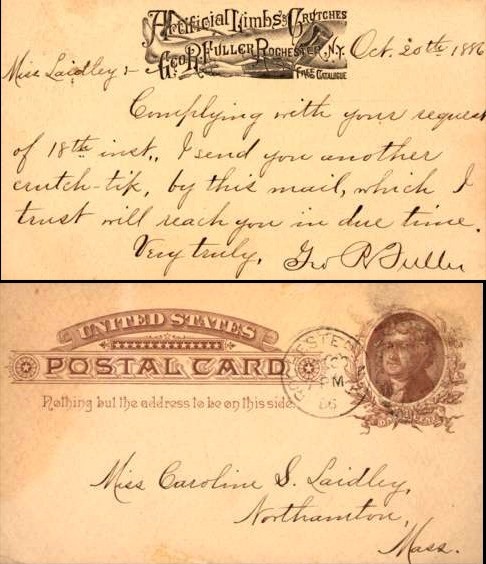 Artificial Limbs & Crutches
Geo. R. Fuller Rochester, N.Y.
Free Catalogue
Oct. 20th 1886
Miss Laidley :-
Complying with your request
of 18th inst., I send you another
crutch-tip, by this mail, which I
trust will reach you in due time.
Very truly, Geo R Fuller
UNITED STATES
POSTAL CARD
Nothing but the address to be on this side.
ROCHESTER
PM
86
Miss Caroline S. Laidley,
Northamton,
Mass.